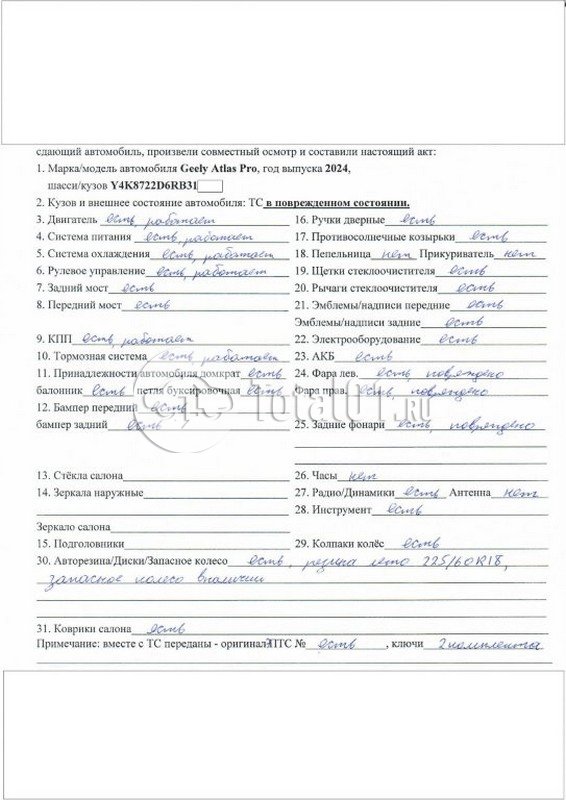 сдающий автомобиль, произвели совместный осмотр и составили настоящий акт:
1. Марка/модель автомобиля Geely Atlas Pro, год выпуска 2024,
шасси/кузов Y4K8722D6RB31
2. Кузов и внешнее состояние автомобиля: ТС в поврежденном состоянии.
3. Двигатель есть, работает
4. Система питания есть, работает
5. Система охлаждения есть, работает
6. Рулевое управление есть, работает
7. Задний мост есть
8. Передний мост есть
9. КПП есть, работает
10. Тормозная система есть работает
11. Принадлежности автомобиля домкрат есть
балонник есть петля буксировочная есть
12. Бампер передний есть
бампер задний есть
13. Стёкла салона
14. Зеркала наружные
Зеркало салона
15. Подголовники
16. Ручки дверные есть
17. Противосолнечные козырьки есть
18. Пепельница нет Прикуриватель нет
19. Щетки стеклоочистителя есть
20. Рычаги стеклоочистителя есть
21. Эмблемы/надписи передние есть
Эмблемы/надписи задние есть
22. Электрооборудование есть
23. АКБ есть
24. Фара лев. есть, повреждено
Фара прав. есть, повреждено
25. Задние фонари есть, повреждено
26. Часы нет
27. Радио/Динамики есть Антенна нет
28. Инструмент есть
29. Колпаки колёс есть
30. Авторезина/Диски/Запасное колесо есть, резина лето 225/60R18,
запасное колесо в наличии
31. Коврики салона есть
Примечание: вместе с ТС переданы - оригинал ПТС № есть, ключи 2 комплекта
Total01.RU